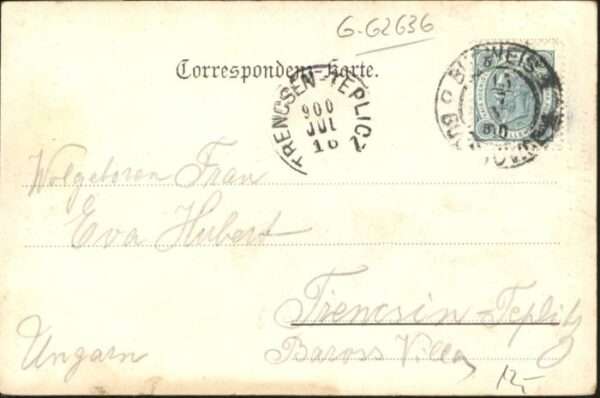 G-G2636
Correspondenz-Karte.
TRENCSEN-TEPLICZ
900
JUL
16
BUDWEIS
Wolgeboren Frau
Eva Hubert
Trencsin Teplitz
Ungarn
Baross Villa
12-